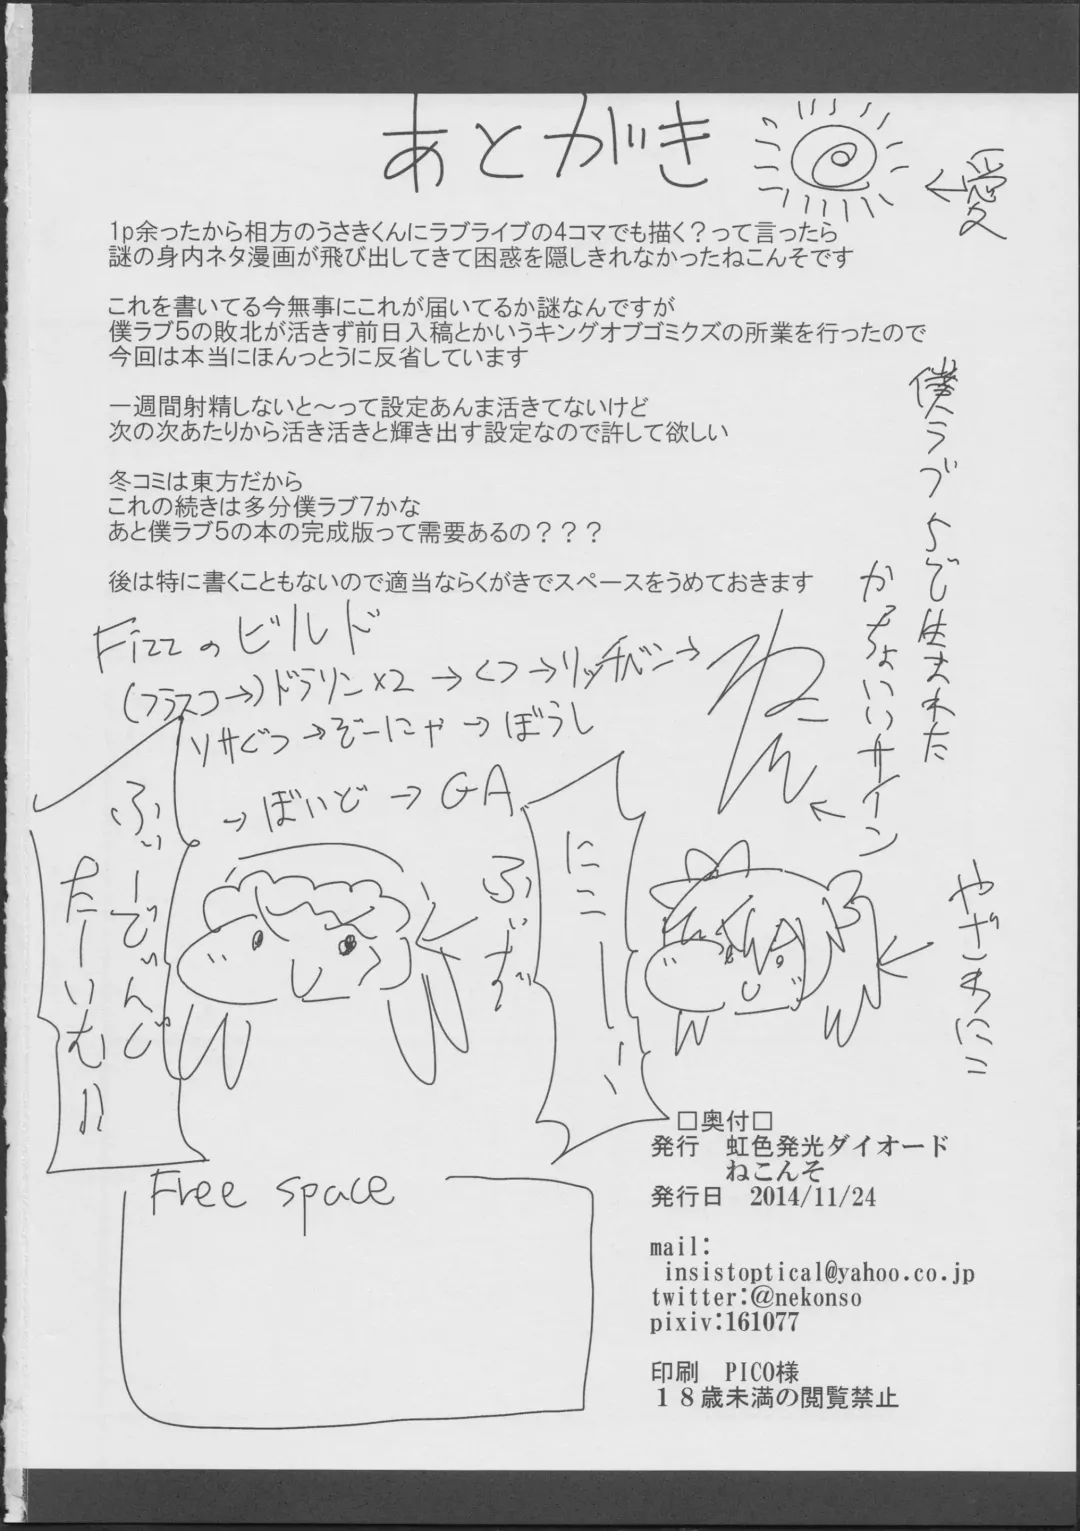 あとがき
←愛
1p余ったから相方のうさきくんにラブライブの4コマでも描く？って言ったら
謎の身内ネタ漫画が飛び出してきて困惑を隠しきれなかったねこんそです
これを書いてる今無事にこれが届いてるか謎なんですが
僕ラブ5の敗北が活きず前日入稿とかいうキングオブゴミクズの所業を行ったので
今回は本当にほんっとうに反省しています
一週間射精しないと～って設定あんま活きてないけど
次の次あたりから活き活きと輝き出す設定なので許して欲しい
冬コミは東方だから
これの続きは多分僕ラブ7かな
あと僕ラブ5の本の完成版って需要あるの？？？
後は特に書くこともないので適当ならくがきでスペースをうめておきます
僕ラブ5で生まれた
かっちょいいサイン
ねん
Fizzのビルド
(フラスコ→)ドラリン×2→くつ→リッチベン→
ソサぐつ→ぞーにゃ→ぼうし
→ぼいど→GA
ふぃーでぃんぐ
たーいむ!!
ふぃず
にこーーー
やざわにこ
Free space
□奥付□
発行　虹色発光ダイオード
ねこんそ
発行日　2014/11/24
mail:
insistoptical@yahoo.co.jp
twitter:@nekonso
pixiv:161077
印刷　PICO様
１８歳未満の閲覧禁止